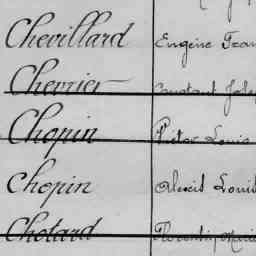 Chevillard Eugène Fran
Chevrier Constant Jose
Chopin Victor Louis
Chopin Alexis Louis
Chotard Florentin Marie